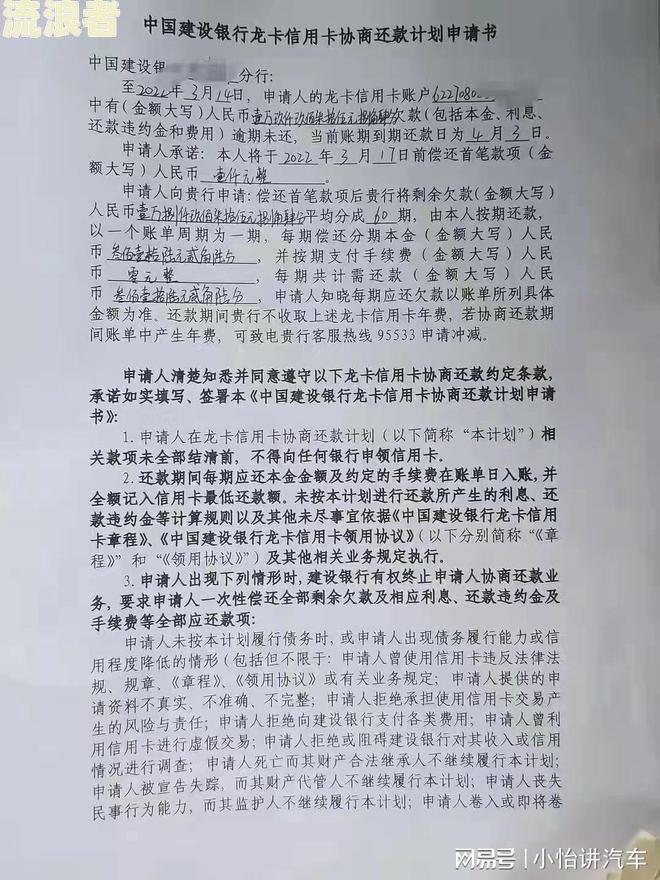 流浪者
中国建设银行龙卡信用卡协商还款计划申请书
中国建设银 分行:
至2022年3月14日，申请人的龙卡信用卡账户622708
中有(金额大写)人民币壹万玖仟玖佰柒拾伍元捌角肆分欠款(包括本金、利息、
还款违约金和费用)逾期未还，当前账期到期还款日为4月3日。
申请人承诺：本人将于2022年3月17日前偿还首笔款项(金
额大写)人民币壹仟元整。
申请人向贵行申请：偿还首笔款项后贵行将剩余欠款(金额大写)
人民币壹万捌仟玖佰柒拾伍元捌角肆分平均分成60期，由本人按期还款，
以一个账单周期为一期，每期偿还分期本金(金额大写)人民
币叁佰壹拾陆元贰角陆分，并按期支付手续费(金额大写)人民
币零元整，每期共计需还款(金额大写)人民
币叁佰壹拾陆元贰角陆分，申请人知晓每期应还欠款以账单所列具体
金额为准。还款期间贵行不收取上述龙卡信用卡年费，若协商还款期
间账单中产生年费，可致电贵行客服热线95533申请冲减。
申请人清楚知悉并同意遵守以下龙卡信用卡协商还款约定条款，
承诺如实填写、签署本《中国建设银行龙卡信用卡协商还款计划申请
书》：
1. 申请人在龙卡信用卡协商还款计划(以下简称“本计划”)相
关款项未全部结清前，不得向任何银行申领信用卡。
2. 还款期间每期应还本金金额及约定的手续费在账单日入账，并
全额记入信用卡最低还款额。未按本计划进行还款所产生的利息、还
款违约金等计算规则以及其他未尽事宜依据《中国建设银行龙卡信用
卡章程》、《中国建设银行龙卡信用卡领用协议》(以下分别简称“《章
程》”和“《领用协议》”)及其他相关业务规定执行。
3. 申请人出现下列情形时，建设银行有权终止申请人协商还款业
务，要求申请人一次性偿还全部剩余欠款及相应利息、还款违约金及
手续费等全部应还款项：
申请人未按本计划履行债务时，或申请人出现债务履行能力或信
用程度降低的情形(包括但不限于：申请人曾使用信用卡违反法律法
规、规章、《章程》、《领用协议》或有关业务规定；申请人提供的申
请资料不真实、不准确、不完整；申请人拒绝承担使用信用卡交易产
生的风险与责任；申请人拒绝向建设银行支付各类费用；申请人曾利
用信用卡进行虚假交易；申请人拒绝或阻碍建设银行对其收入或信用
情况进行调查；申请人死亡而其财产合法继承人不继续履行本计划；
申请人被宣告失踪，而其财产代管人不继续履行本计划；申请人丧失
民事行为能力，而其监护人不继续履行本计划；申请人卷入或即将卷
网易号 | 小怡讲汽车